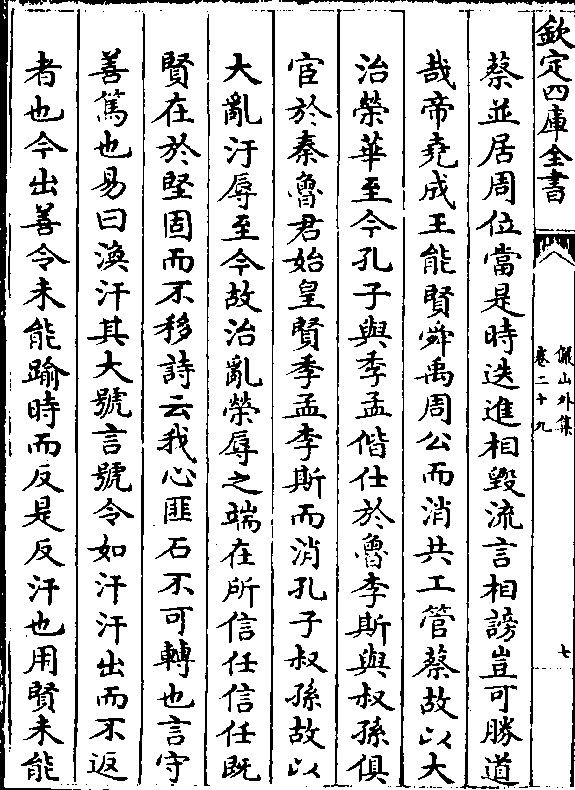 欽定四庫全書
儼山外集
卷二十九
七
蔡並居周位當是時迭進相毀流言相謗豈可勝道
哉帝堯成王能賢舜禹周公而消共工管蔡故以大
治榮華至今孔子與季孟偕仕於魯李斯與叔孫俱
宦於秦魯君始皇賢季孟李斯而消孔子叔孫故以
大亂汙辱至今故治亂榮辱之端在所信任信任既
賢在於堅固而不移詩云我心匪石不可轉也言守
善篤也易曰渙汗其大號言號令如汗汗出而不返
者也今出善令未能踰時而反是反汗也用賢未能